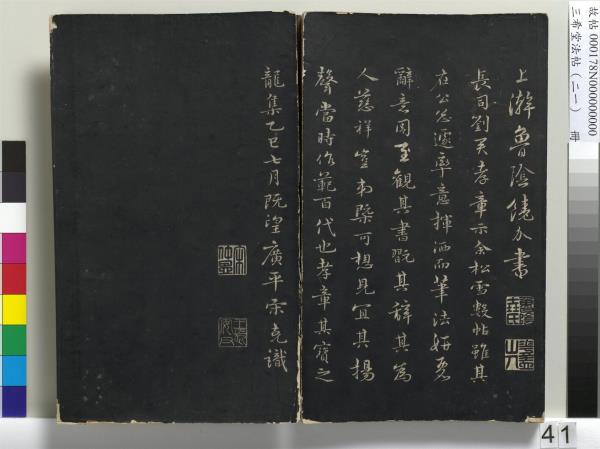 上澣魯陰饒介書
長司劉君孝章示余松雪數帖雖其
在公怱遽率意揮洒而筆法妍麗
辭意周至觀其書翫其辭其為
人慈祥豈弟槩可想見宜其揚
聲當時作範百代也孝章其寶之
龍集乙巳七月既望廣平宋克識
故帖 000178N000000000
三希堂法帖（二一） 冊
41